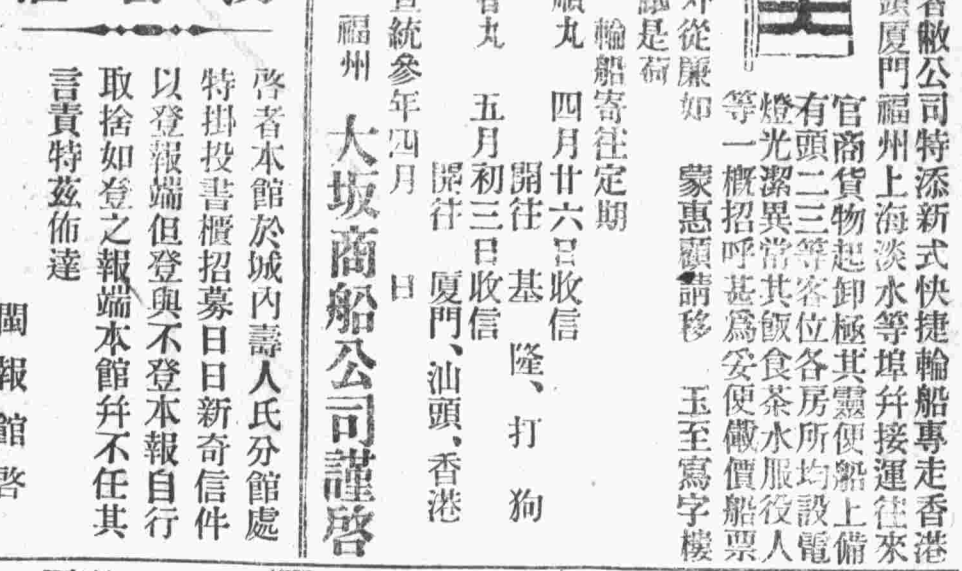 者敝公司特添新式快捷輪船專走香港
頭厦門福州上海淡水等埠幷接運往來
官商貨物起卸極其靈便船上備
有頭二三等客位各房所均設電
燈光潔異常其飯食茶水服役人
等一概招呼甚爲妥便儎價船票
外從廉如 蒙惠顧請移 玉至寫字樓
議是荷
輪船寄往定期
順丸 四月廿六日收信
開往 基隆、打狗
丸 五月初三日收信
開往 厦門、汕頭、香港
宣統參年四月 日
福州 大坂商船公司謹啓
啓者本館於城內壽人氏分館處
特掛投書櫃招募日日新奇信件
以登報端但登與不登本報自行
取捨如登之報端本館幷不任其
言責特茲佈達
閩報館啓